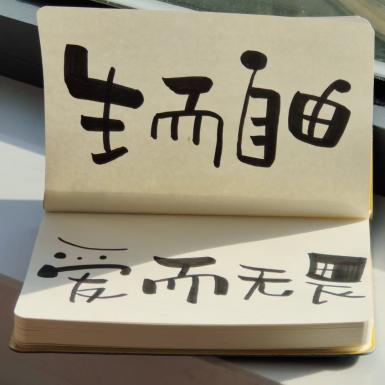 生而自由
爱而无畏